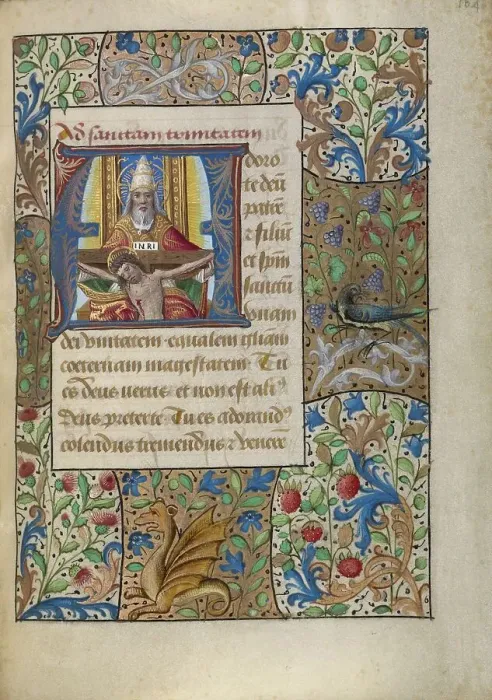 184
Ad sanctam trinitatem
INRI
Adoro
te deū
patrē
et filiū
et spm
sanctū
bonam
dei vnitatem equalem quam
coeternam magestatem Tu
es deus uerus et non est ali⁹
Deus preter te Tu es adorand⁹
colendus tremendus et vener